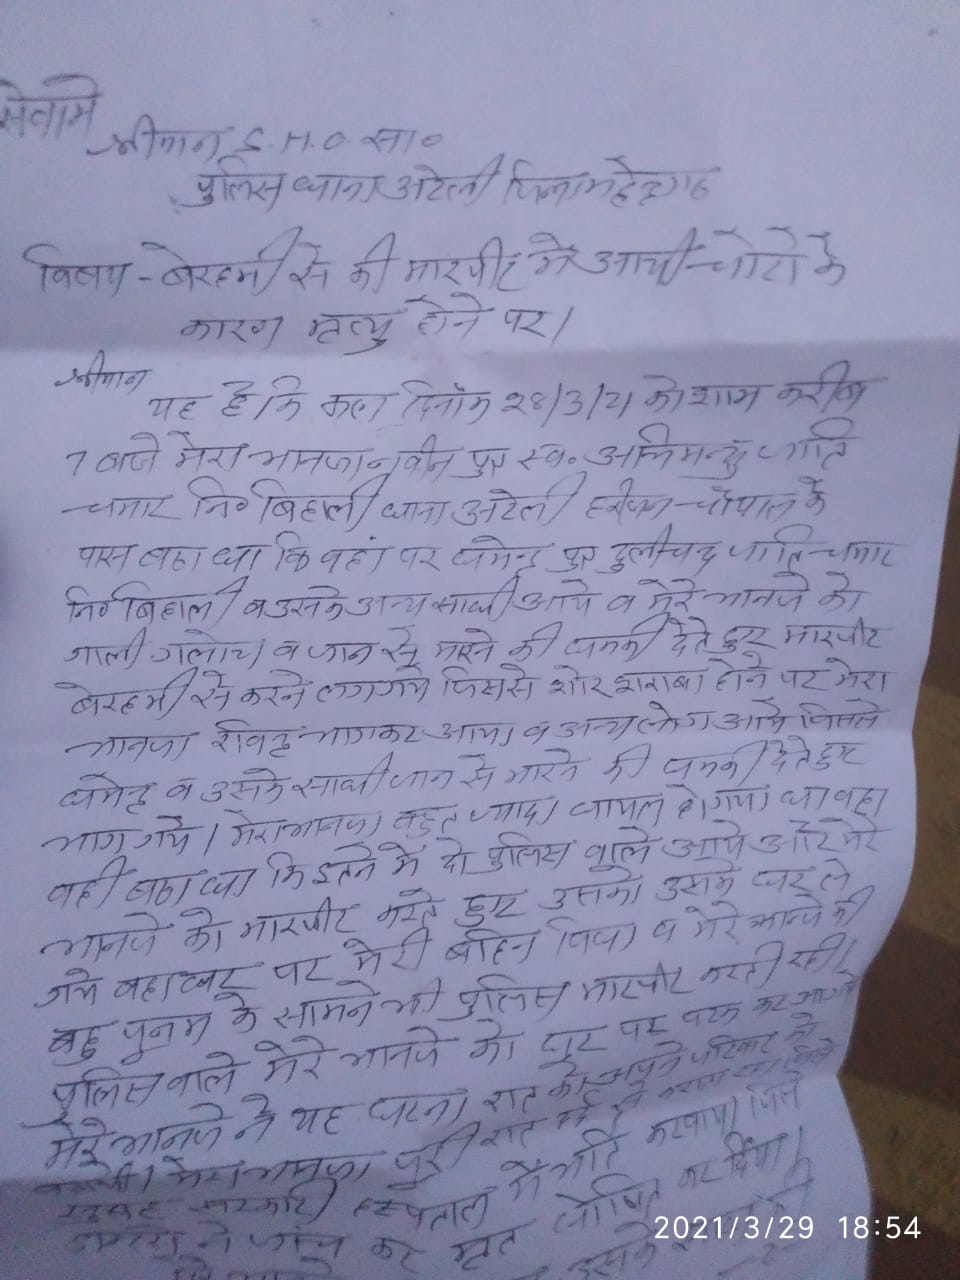 सेवामे
श्रीमान S.H.O. सा०
पुलिस थाना अटेली जिला महेन्द्रगढ
विषय - बेरहमी से की मारपीट में आयी चोटो के
कारण मृत्यु होने पर।
श्रीमान
यह है कि कल दिनाँक 28/3/21 को शाम करीब
7 बजे मेरा भानजा नवीन पुत्र स्व० अभिमन्यु जाति
चमार नि० बिहाली थाना अटेली हरीजन चौपाल के
पास बैठा था कि वहां पर धमेन्द्र पुत्र दुलीचन्द जाति चमार
नि० बिहाली व उसके अन्य साथी आये व मेरे भानजे को
गाली गलोच व जान से मारने की धमकी देते हुए मारपीट
बेरहमी से करने लग गये जिससे शोर शराबा होने पर मेरा
भानजा रविन्द्र भागकर आया व अन्य लोग आये जिसते
धमेन्द्र व उसके साथी जान से मारने की धमकी देते हुए
भाग गये। मेरा भानजा बहुत ज्यादा घायल हो गया था वहा
वही बैठा था कि इतने में दो पुलिस वाले आये और मेरे
भानजे को मारपीट करते हुए उसको उसके घर ले
गये वहा घर पर मेरी बहिन व मेरे भान्जे की
बहु पुनम के सामने भी पुलिस मारपीट करती रही।
पुलिस वाले मेरे भानजे को घर पर पटक कर आ गये
मेरे भानजे ने यह घटना रात को अपने परिवार को
मेरा भानजा पुरी रात दर्द से
सुबह सरकारी हस्पताल में भर्ति करवाया जिसे
डाक्टरो ने जांच कर मृत घोषित कर दिया।
उसके
2021/3/29 18:54